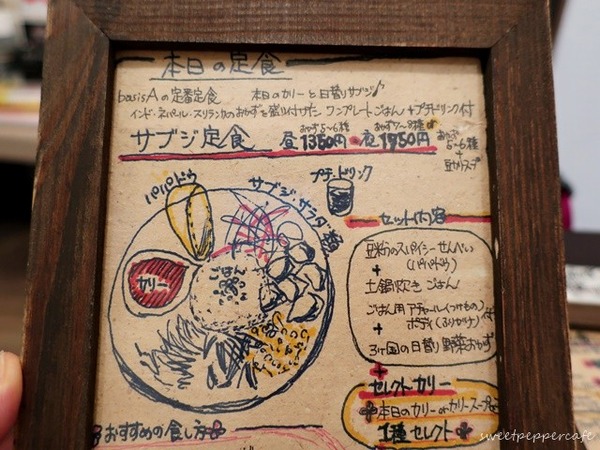 本日の定食
basis Aの定番定食 本日のカリーと日替りサブジ♪
インド・ネパール・スリランカのおかずを盛り付けた ワンプレートごはん+プチドリンク付
サブジ定食 昼 おかず5~6種 1350円・夜 おかず7~8種 1950円
おかず
5~6種
+
豆カリスープ
パパドゥ
サブジ・サラダ 5種
プチ・ドリンク
カリー
ごはん
セット内容
豆粉のスパイシーせんべい
(パパドゥ)
+
土鍋炊き ごはん
ごはん用 アチャール(つけもの)
ポディ(ふりかけ) 付
+
3ケ国の日替り野菜おかず
+
セレクトカリー
本日のカリー orカリースープ
1種セレクト
おすすめの食し方
sweetpeppercafe